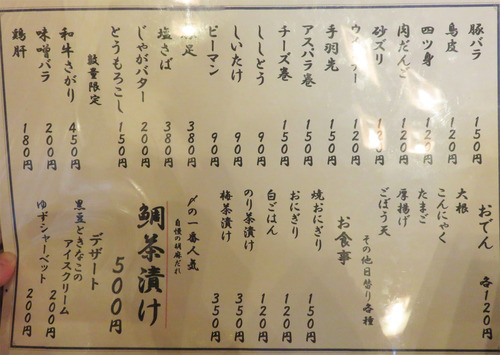 豚バラ 150円
鳥皮 120円
四ツ身 120円
肉だんご 120円
砂ズリ 120円
ウィンナー 120円
手羽先 150円
アスパラ巻 150円
チーズ巻 150円
ししとう 90円
しいたけ 90円
ピーマン 90円
豚足 380円
塩さば 380円
じゃがバター 200円
とうもろこし 150円
数量限定
和牛さがり 450円
味噌バラ 200円
鶏肝 180円
おでん 各120円
大根
こんにゃく
たまご
厚揚げ
ごぼう天
その他日替り各種
お食事
焼おにぎり 150円
おにぎり 120円
白ごはん 120円
のり茶漬け 350円
梅茶漬け 350円
〆の一番人気
自慢の胡麻だれ
鯛茶漬け 500円
デザート
黒豆ときなこの
アイスクリーム 200円
ゆずシャーベット 200円